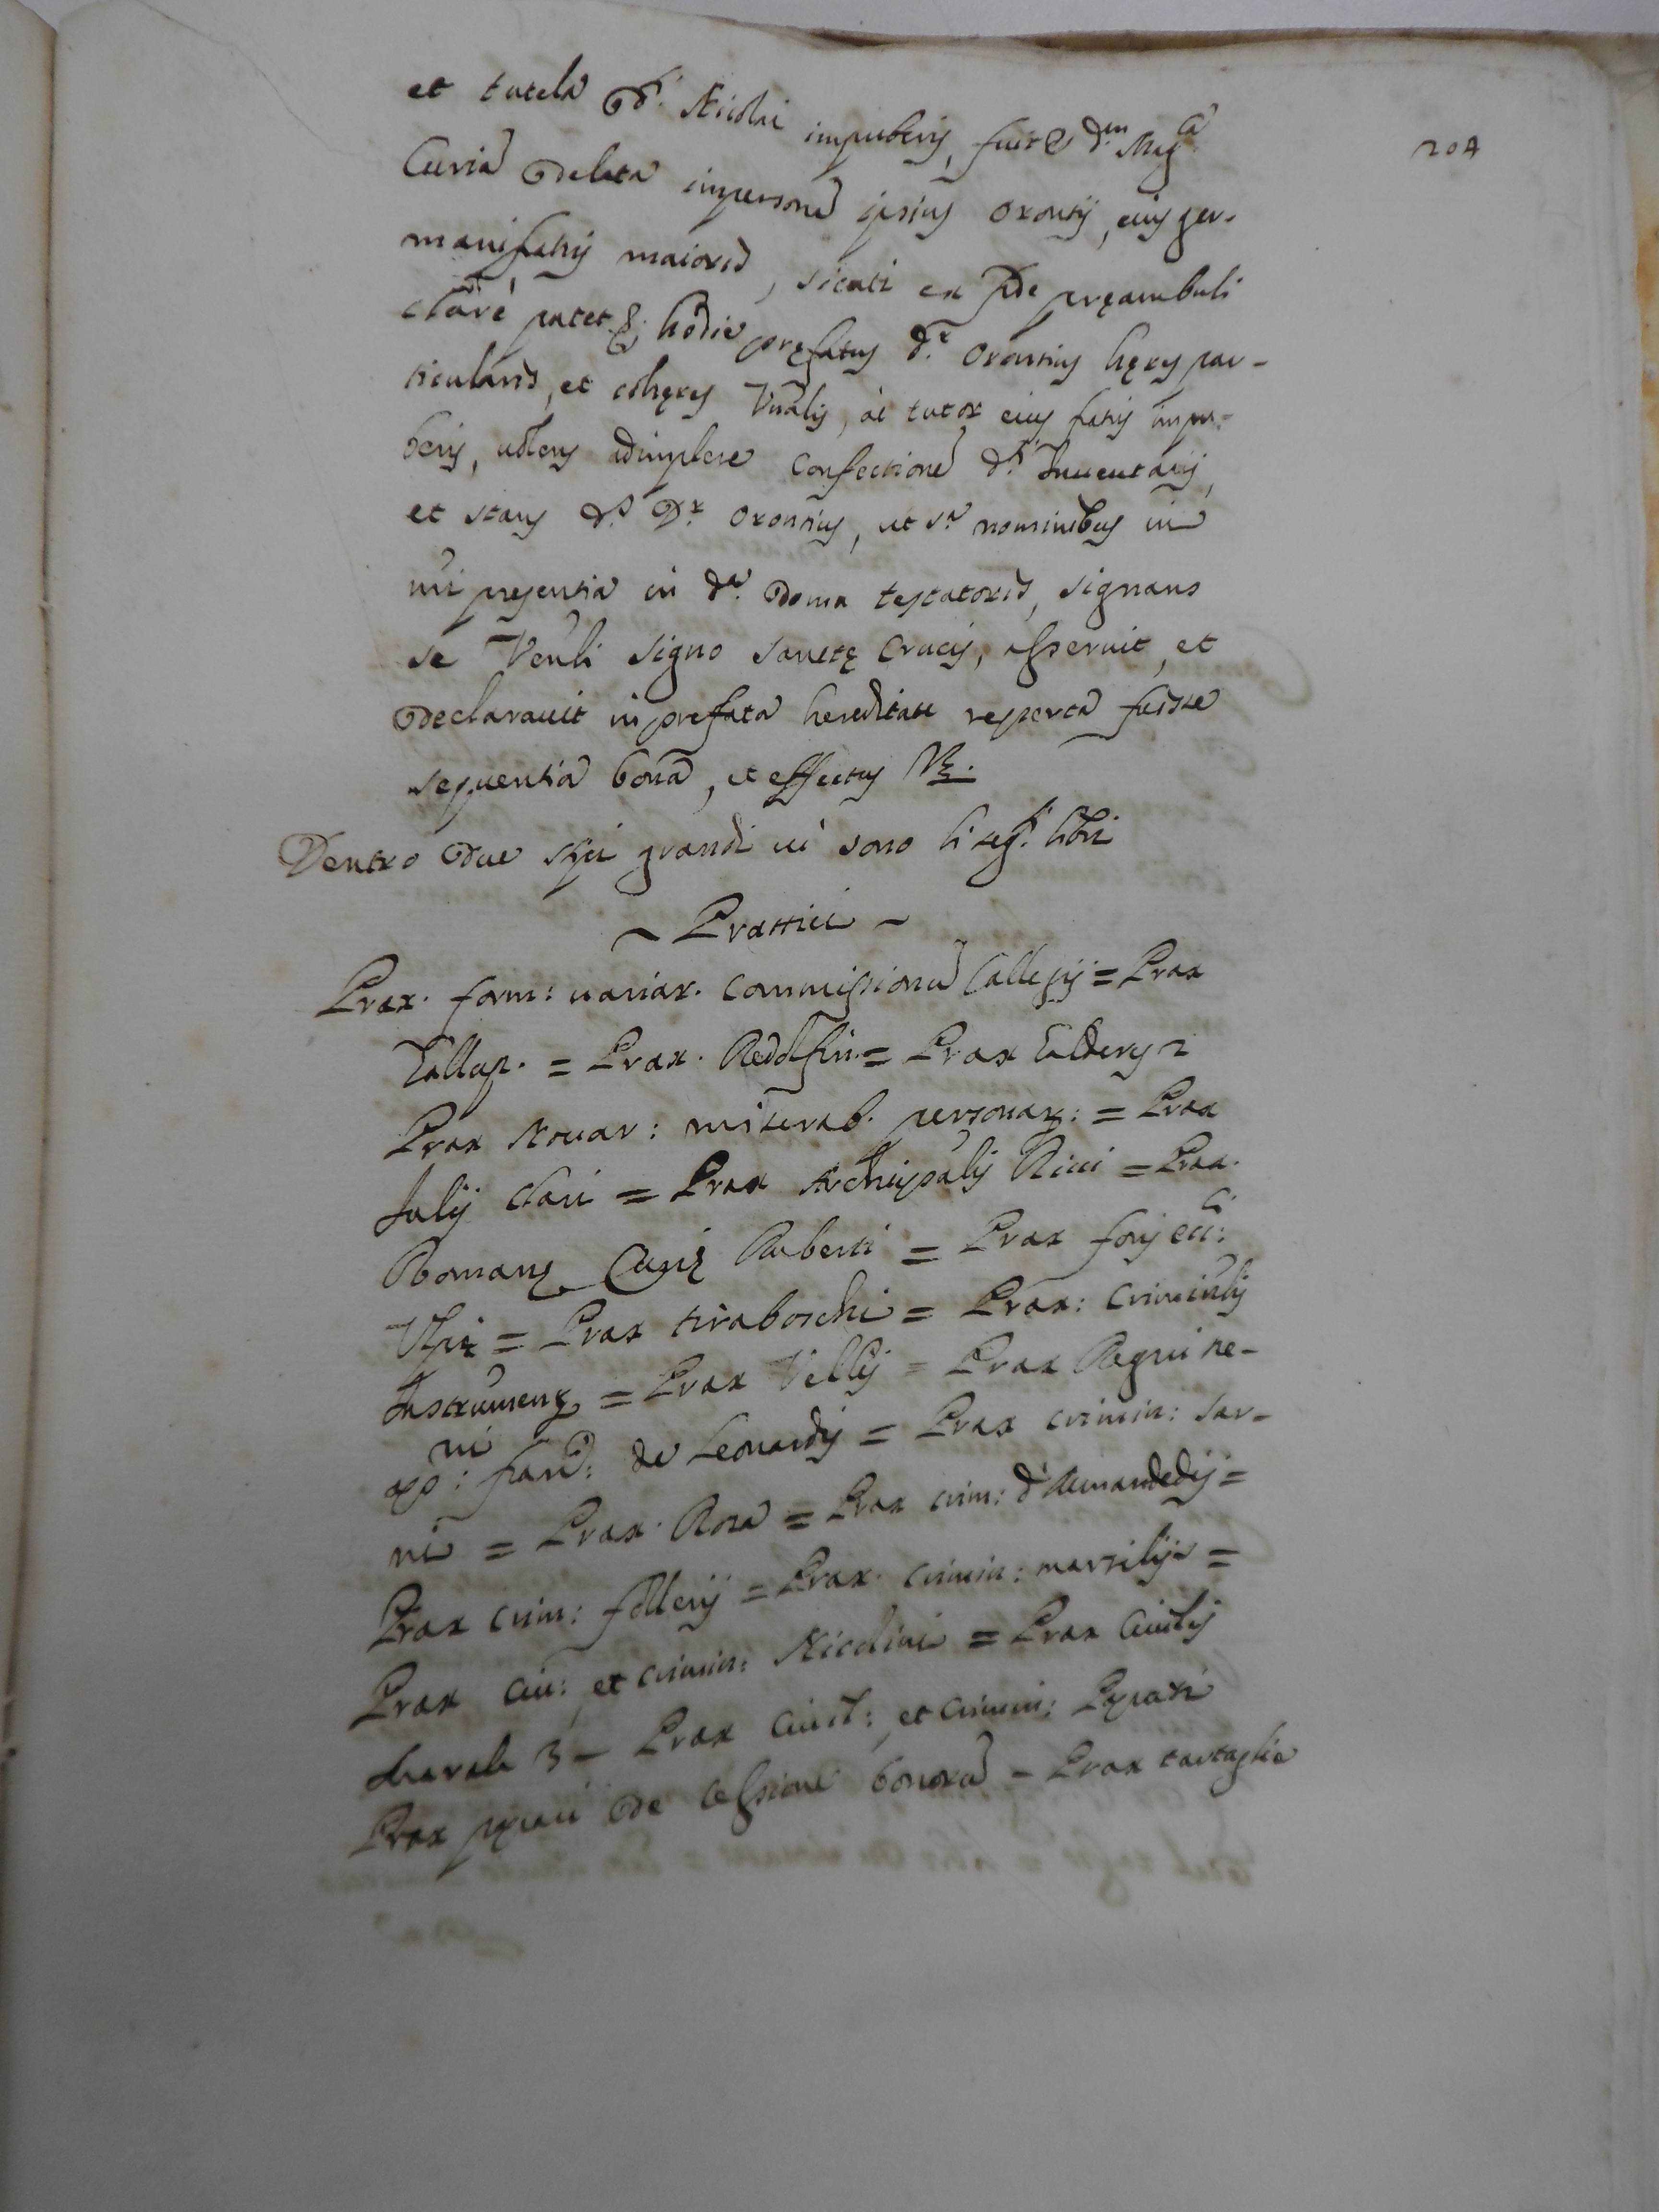 204
et tutela d.i Nicolai impuberis, fuit P d.m Mag.ca
Curia delata in persona ipsius Orontij, eius ger-
mani fatris maioris, sicuti ex fide preambuli
clare patet &; hodie prefatus D.r Orontius heres par-
ticularis, et coheres Vnalis, ac tutor eius fatris impu-
beris, volens adimplere confectione d.i Inventarij,
et stans d.s D.r Orontius, ut s.a nominibus in
mi presentia in d.a domu testatoris, signans
se Venli signo sancte Crucis, asseruit, et
declarauit in prefata hereditate reperta fuisse
sequentia bona, et effectus Vz.
Dentro due stipi grandi ui sono li seg.ti libri
~ Prattici ~
Prax. form: variar. commissionu Callesij = Prax
Gallup. = Prax. Redolfin. = Prax Calderij 2
Prax Novar: miserab. personar: = Prax
Julij Clari = Prax Archiepalis Ricci = Prax.
Romane Curie Ruberti = Prax forj ecci:
Vlpie = Prax tiraboschi = Prax: criminalis
Instrumeng = Prax Vellij = Prax Regni ne-
ap: fran: de Leonardis = Prax crimin: sar-
ni = Prax. Rosa = Prax crim: d'
Prax crim: follerij = Prax. crimin: marsilij =
Prax ciu: et crimin: Nicolini = Prax Ciuilis
3 - Prax ciuil: et crimin:
Prax de cessione bonoru = Prax tartaglia